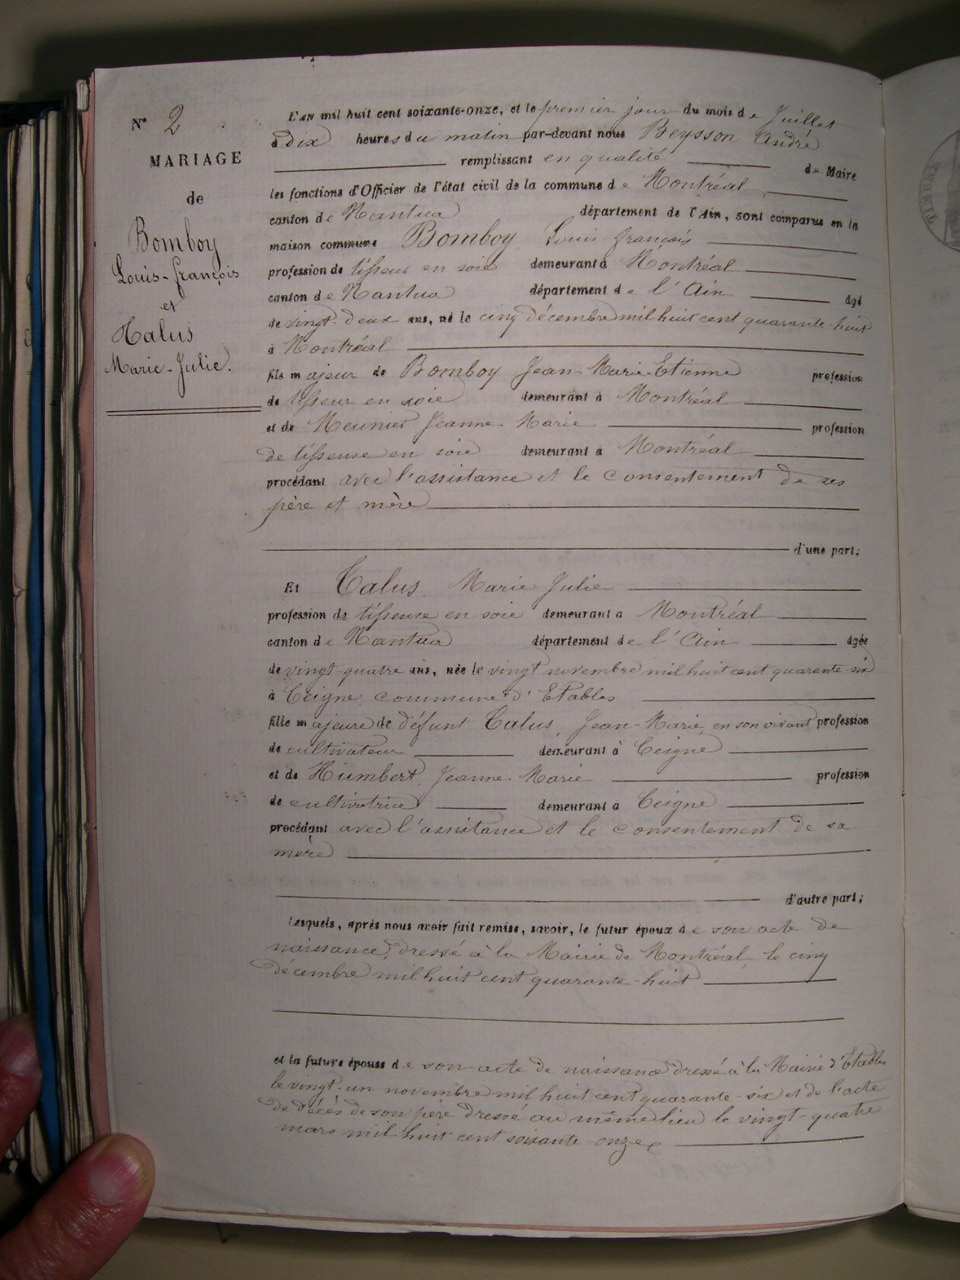 N° 2
MARIAGE
de
Bomboy
Louis-François
et
Talus
Marie-Julie.
L'an mil huit cent soixante-onze, et le premier jour du mois de Juillet
à dix heures du matin par-devant nous Beysson André
remplissant en qualité de Maire
les fonctions d'Officier de l'état civil de la commune de Montréal
canton de Nantua département de l'Ain, sont comparus en la
maison commune Bomboy Louis françois
profession de tisseur en soie demeurant à Montréal
canton de Nantua département de l'Ain âgé
de vingt-deux ans, né le cinq décembre mil huit cent quarante-huit
à Montréal
fils majeur de Bomboy Jean-Marie-Etienne profession
de tisseur en soie demeurant à Montréal
et de Meunier Jeanne-Marie profession
de tisseuse en soie demeurant à Montréal
procédant avec l'assistance et le consentement de ses
père et mère
d'une part;
Et Talus Marie Julie
profession de tisseuse en soie demeurant à Montréal
canton de Nantua département de l'Ain âgée
de vingt quatre ans, née le vingt novembre mil huit cent quarante six
à Ceigne commune d'Etables
fille majeure de défunt Talus, Jean-Marie, en son vivant profession
de cultivateur demeurant à Ceigne
et de Humbert Jeanne-Marie profession
de cultivatrice demeurant à Ceigne
procédant avec l'assistance et le consentement de sa
mère
d'autre part;
Lesquels, après nous avoir fait remise, savoir, le futur époux de son acte de
naissance, dressé à la Mairie de Montréal, le cinq
décembre mil huit cent quarante-huit
et la future épouse de son acte de naissance dressé à la Mairie d'Etables
le vingt-un novembre mil huit cent quarante-six et de l'acte
de décès de son père dressé au même lieu le vingt-quatre
mars mil huit cent soixante onze